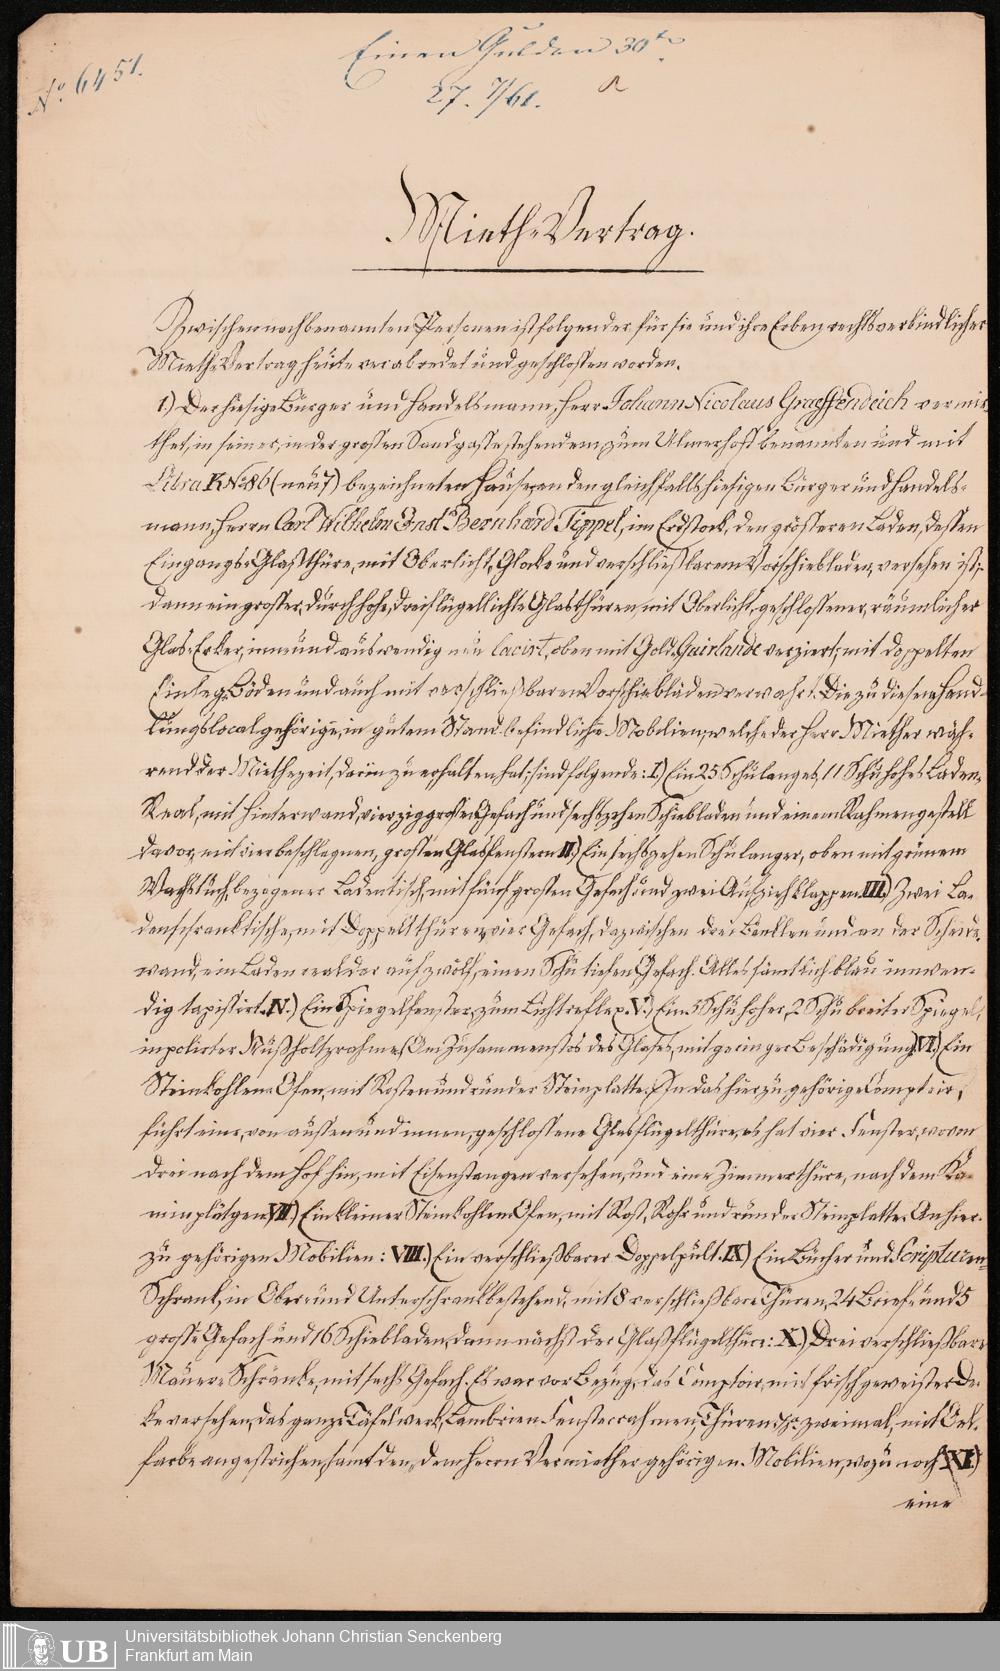 No. 6451.
Einen Gulden 30 kr.
27. 7/61.
Mieth-Vertrag.
Zwischen nachbenannten Personen ist folgender für sie und ihre Erben rechtsverbindlicher
Mieth-Vertrag heute verabredet und geschlossen worden.
1.) Der hiesige Bürger und Handelsmann, Herr Johann Nicolaus Graeffendeich vermie-
thet, in seiner, in der grossen Sandgasse stehendem, zum Ulmerhof benannten und mit
Litra K No. 86 (neu 7) bezeichneten Hause, an den gleichfalls hiesigen Bürger und Handels-
mann, Herrn Carl Wilhelm Ernst Bernhard Tippel, im Erdstock, den grösseren Laden, dessen
Eingangs-Glasthüre, mit Oberlicht, Glocke und verschließbarem Vorschiebladen, versehen ist;
dann ein grosser, durch hohe, dreiflügellichte Glasthüren, mit Oberlicht, geschlossener, räumlicher
Glas-Erker, inn- und auswendig neu lacirt, oben mit Gold-Guirlande verziert; mit doppelten
Einleg-Böden und auch mit verschließbaren Vorschiebläden verwahrt. Die zu diesem Hand-
lungslocal gehörige, in gutem Stand befindliche Mobilien, welche der Herr Miether wäh-
rend der Miethezeit, darin zu erhalten hat, sind folgende: I.) Ein 25 Schu langes, 11 Schu hohes Laden-
Real, mit Hinterwand, vierzig grossen Gefach und sechszehen Schiebladen und einem Rahmengestell
davor, mit vier beschlagnen, grossen Glasfenstern II.) Ein sechszehen Schu langer, oben mit grünem
Wachstuch, bezogener Ladentisch, mit fünf grossen Gefach und zwei Aufziehklappen. III.) Zwei La-
denschranktische, mit Doppeltthüren, vier Gefach, dazwischen drei Bänklen und an der Scheide-
wand, ein Laden real der auf zwölf, einen Schu tiefen, Gefach. Alles sämtlich blau inwen-
dig tapissirt. IV.) Ein Spiegelfenster, zum Lichtreflex. V.) Ein 5 Schu hoher, 2 Schu breiter Spiegel,
in polirter Nußholtzrahme, (Am Zusammenstos des Glases, mit geringer Beschädigung) VI.) Ein
Steinkohlen-Ofen, mit Rosten und runder Steinplatte. In das hierzu gehörige Comptoir,
führt eine, von aussen und innen, geschlossene Glasflügelthüre, es hat vier Fenster, wovon
drei nach dem Hof hin, mit Eisenstangen versehen, und eine Zimmerthüre, nach dem Ka-
minplätzgen. VII.) Ein kleiner Steinkohlen-Ofen, mit Rost, Rohr und runder Steinplatte. An hier-
zu gehörigen Mobilien: VIII.) Ein verschließbarer Doppelpult. IX.) Ein Bücher und Scripturen-
Schrank, in Ober- und Unterschrank bestehend, mit 8 verschließbare Thüren, 24 Brief- und 5
grosse Gefach und 16 Schiebladen, dann nächst der Glasflügelthüre: X.) Drei verschließbare
Mauer-Schränke, mit sechs Gefach. Es war vor Bezug, das Comptoir, mit frisch geweister De-
cke versehen, das ganze Täfelwerk, Lambrien, Fensterrahmen, Thüren zweimal, mit Oel-
farbe angestrichen, samt den, dem Herrn Vermiether gehörigen Mobilien, wozu noch XI.)
eine
UB
Universitätsbibliothek Johann Christian Senckenberg
Frankfurt am Main